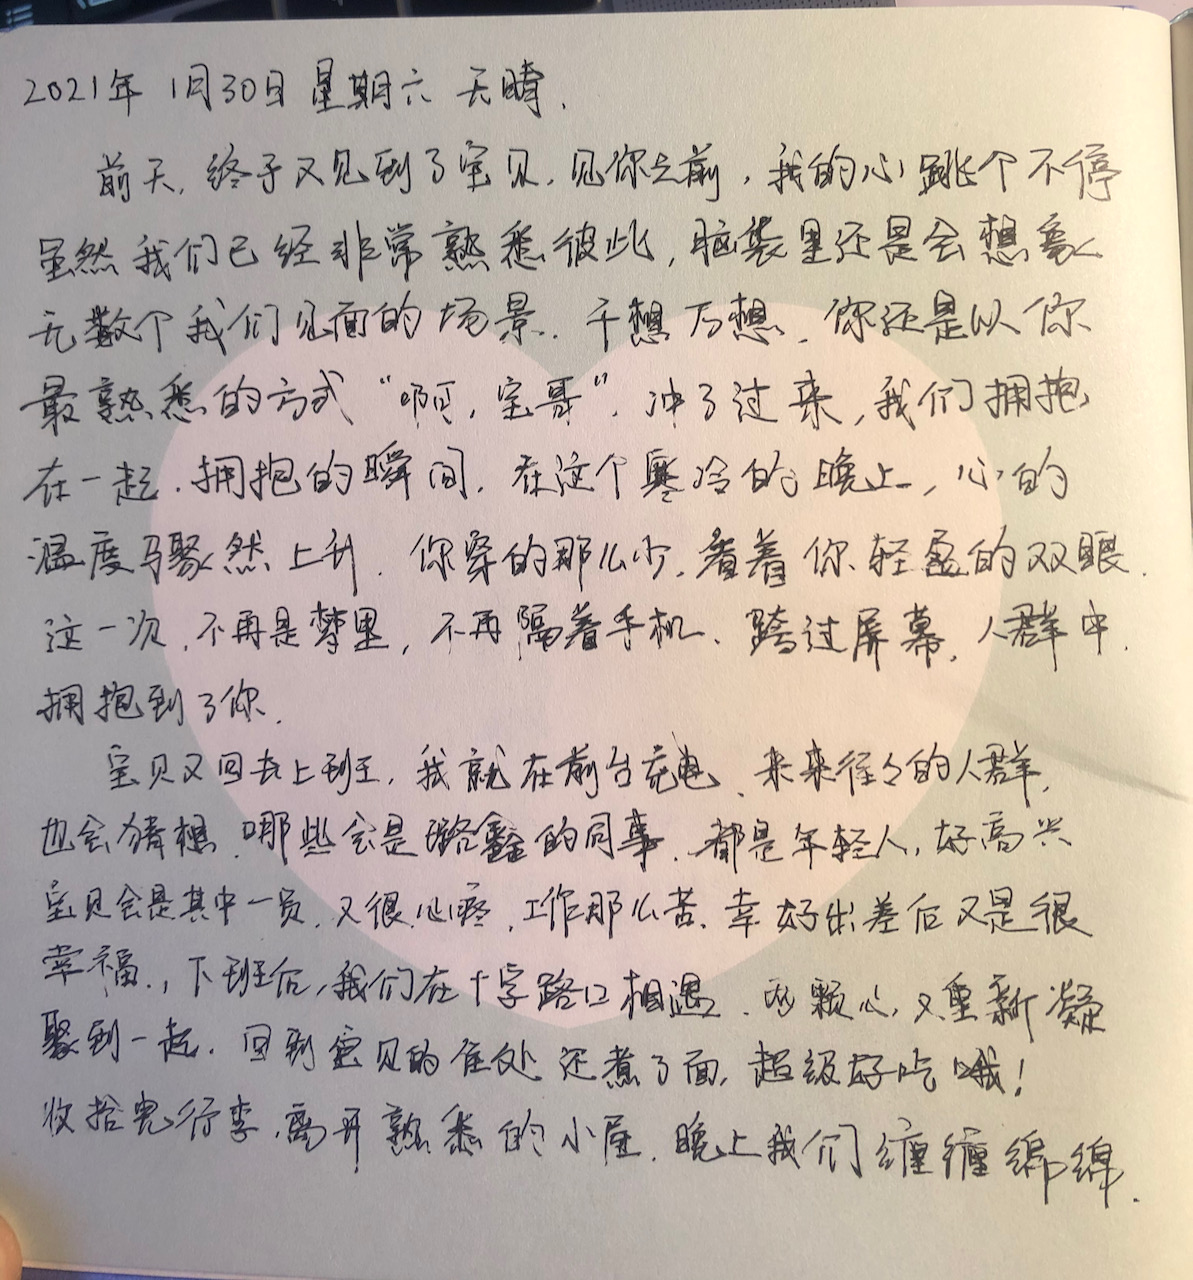 2021年 1月30日 星期六 天晴.
前天,终于又见到了宝贝.见你之前,我的心跳个不停
虽然我们已经非常熟悉彼此,脑袋里还是会想象
无数个我们见面的场景.千想万想.你还是以你
最熟悉的方式“啊,宝哥”.冲了过来,我们拥抱
在一起.拥抱的瞬间.在这个寒冷的晚上,心的
温度骤然上升.你穿的那么少.看着你轻盈的双眼.
这一次,不再是梦里,不再隔着手机.跨过屏幕,人群中.
拥抱到了你.
宝贝又回去上班,我就在前台充电.来来往々的人群,
也会猜想.哪些会是璐鑫的同事.都是年轻人,好高兴
宝贝会是其中一员.又很心疼.工作那么苦.幸好出差后又是很
幸福.,下班后,我们在十字路口相遇.两颗心,又重新凝
聚到一起.回到宝贝的住处还煮了面,超级好吃哦!
收拾完行李,离开熟悉的小屋.晚上我们缠缠绵绵.